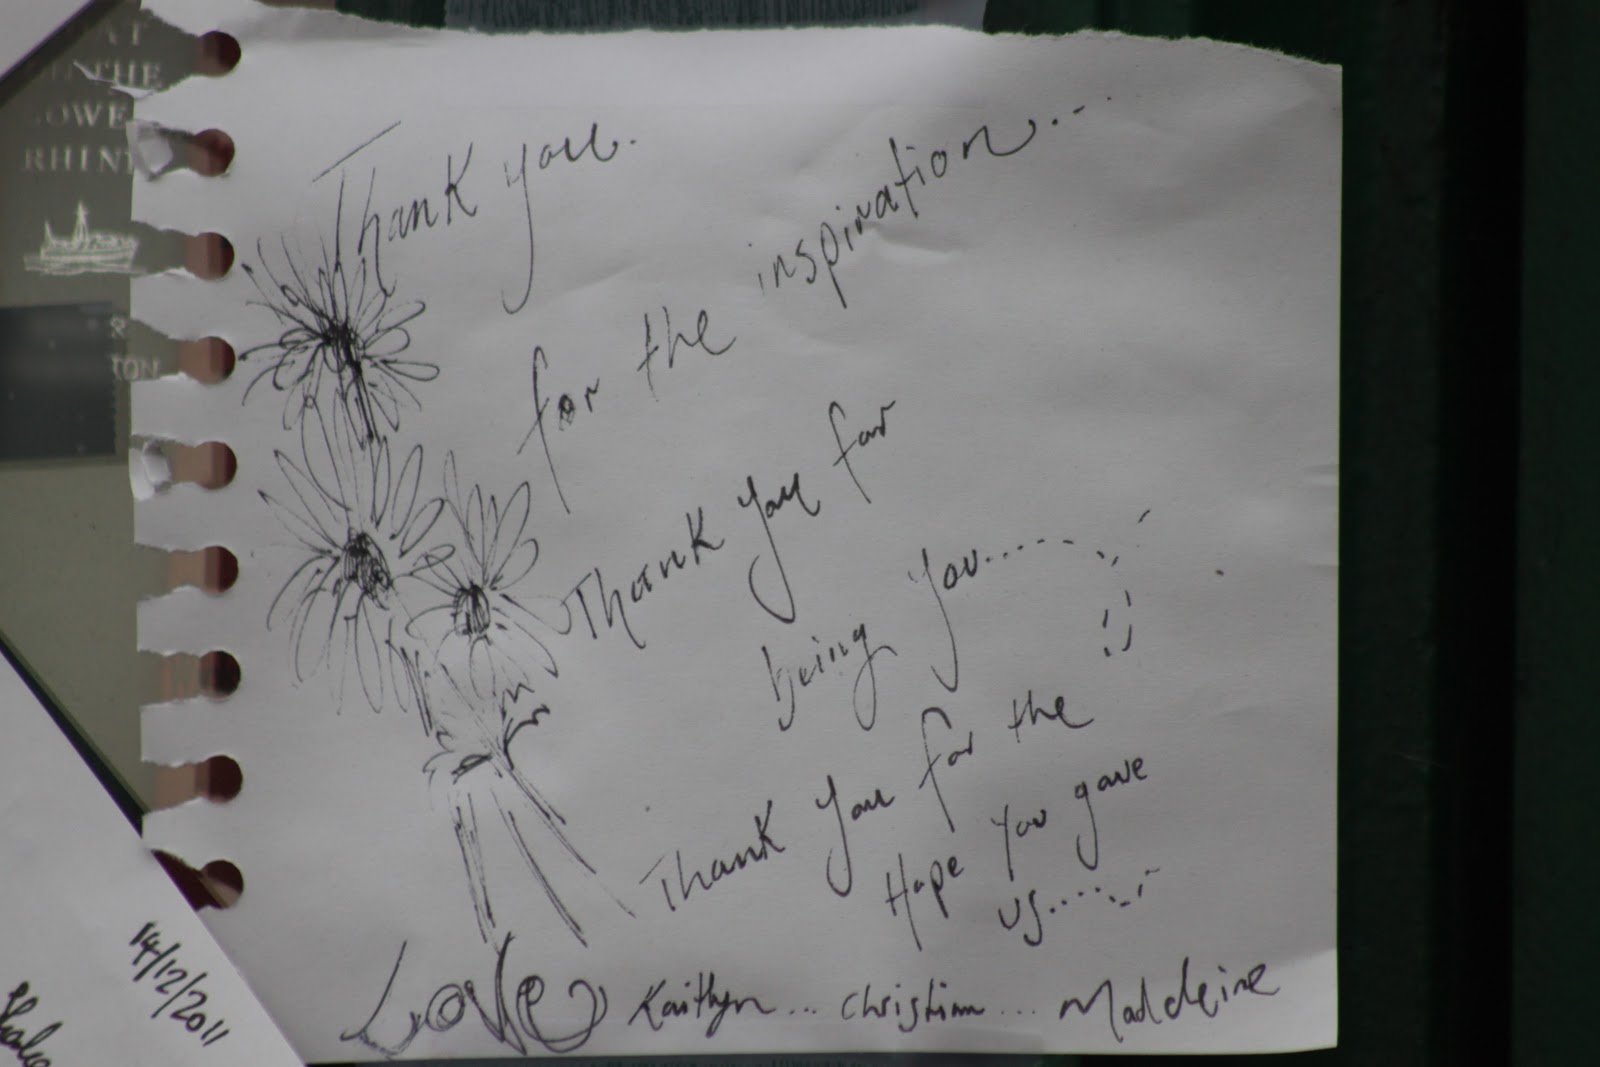 Thank you.
for the inspiration...
Thank you for
being you.....
Thank you for the
Hope you gave
us.....
Love Kaitlyn... Christian... Madeleine
14/12/2011
AT
THE
RHINT
&
TON